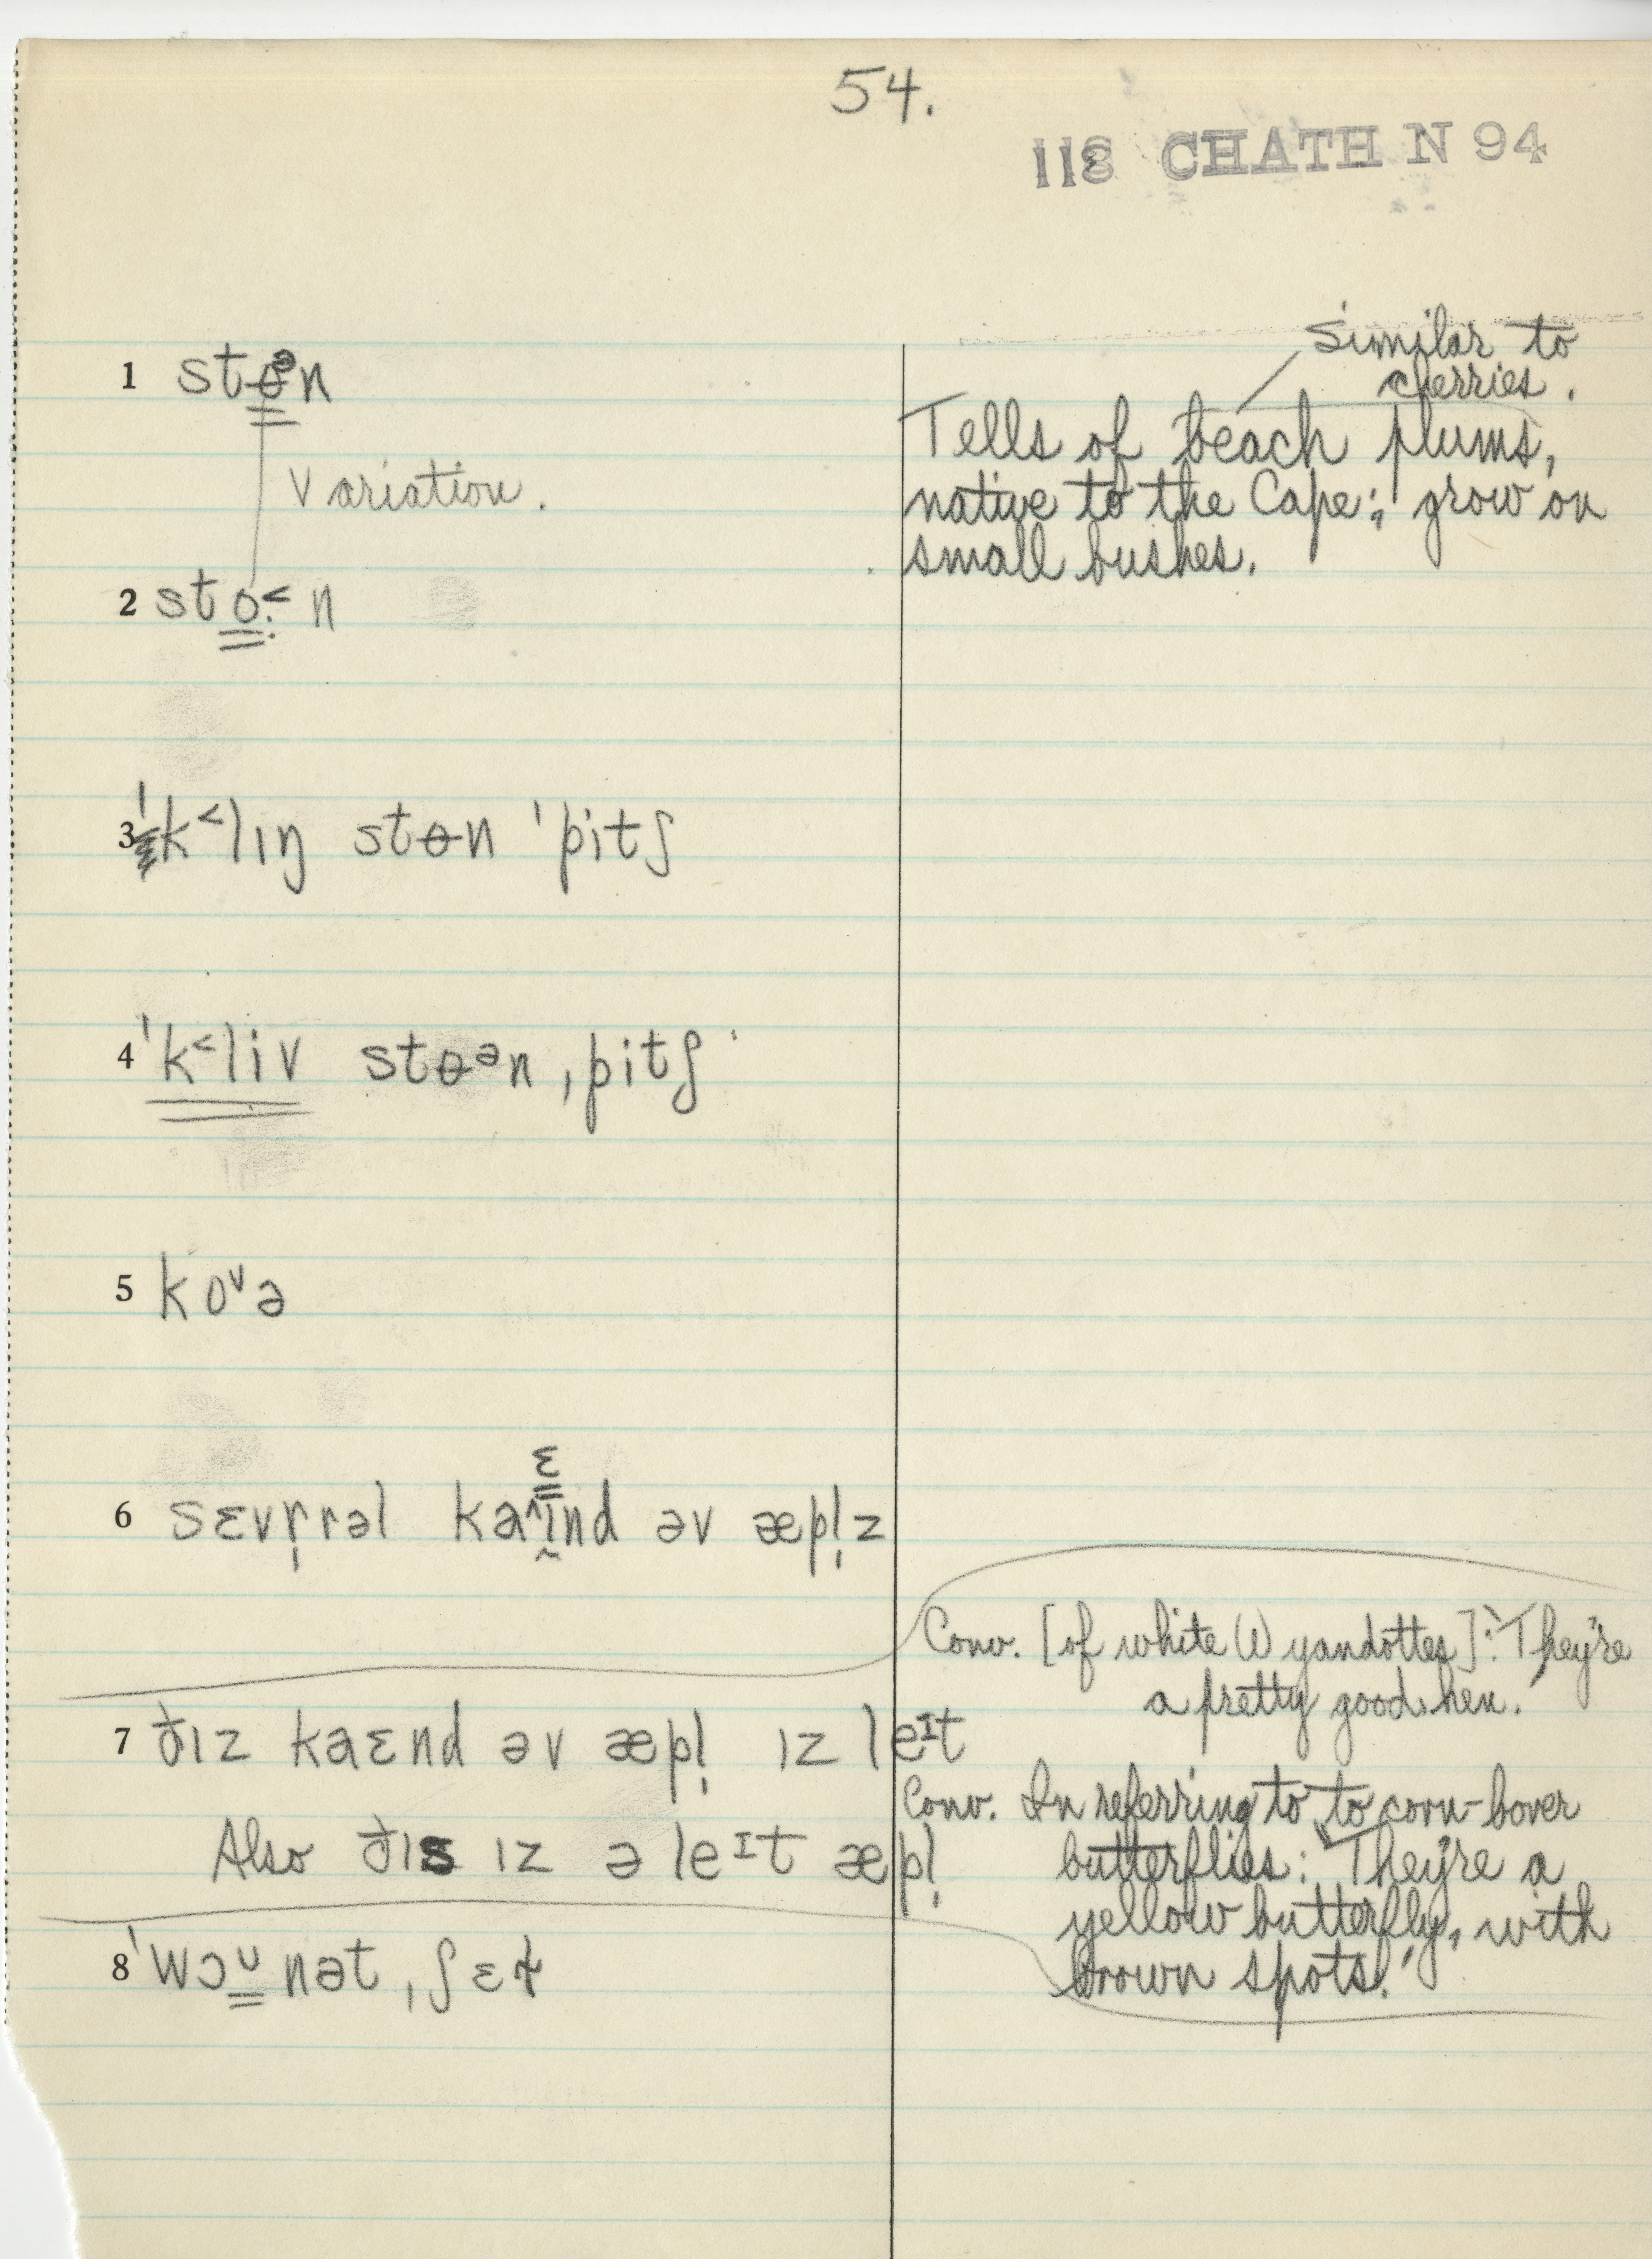 54.
118 CHATH N 94
similar to
cherries.
1 stɵᵊn
Tells of beach plums,
native to the Cape; grow on
small bushes.
Variation.
2 sto.˂n
3 ˈk˂lɪŋ stɵn ˈpitʃ
4 ˈk˂liv stɵᵊn ˌpitʃ
5 koᵛə
6 sɛvr̩rəl kaɪnd əv æpl̩z
ɛ
Conv. [of white Wyandottes]: They're
a pretty good hen.
7 ðɪz kaɛnd əv æpl̩ ɪz leᴵt
Also ðɪs ɪz ə leᴵt æpl̩
Conv. In referring to to corn-borer
butterflies: They're a
yellow butterfly, with
brown spots.
8 ˈwɔᵁnət ˌʃɛɫ